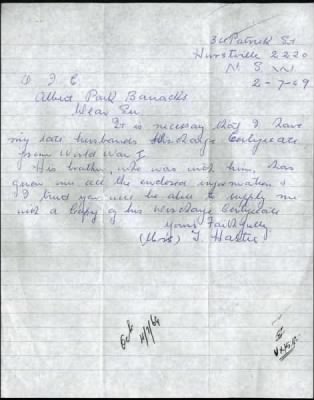 36 Patrick St
Hurstville 2220
N S W
2-7-69
O I C
Albert Park Barracks
Dear Sir
It is necessary that I have
my late husbands discharge Certificate
from World War I
His brother, who was with him, has
given me all the enclosed information &
I trust you will be able to supply me
with a Copy of his discharge Certificate
Yours Faithfully
(Mrs) J Hastie